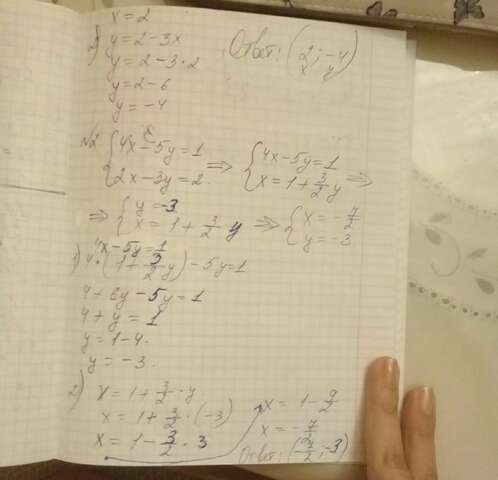 x = 2
2) y = 2 - 3x
y = 2 - 3 · 2
y = 2 - 6
y = -4
Ответ: (2; -4)
x y
№2 {4x - 5y = 1 ⇒ {4x - 5y = 1
{2x - 3y = 2 {x = 1 + 3/2 y ⇒
⇒ {y = -3 ⇒ {x = -7/2
{x = 1 + 3/2 y {y = -3
4x - 5y = 1
1) 4 · (1 + 3/2 y) - 5y = 1
4 + 6y - 5y = 1
4 + y = 1
y = 1 - 4.
y = -3.
2) x = 1 + 3/2 · y
x = 1 + 3/2 · (-3)
x = 1 - 3/2 · 3
x = 1 - 9/2
x = -7/2
Ответ: (7/2; -3)